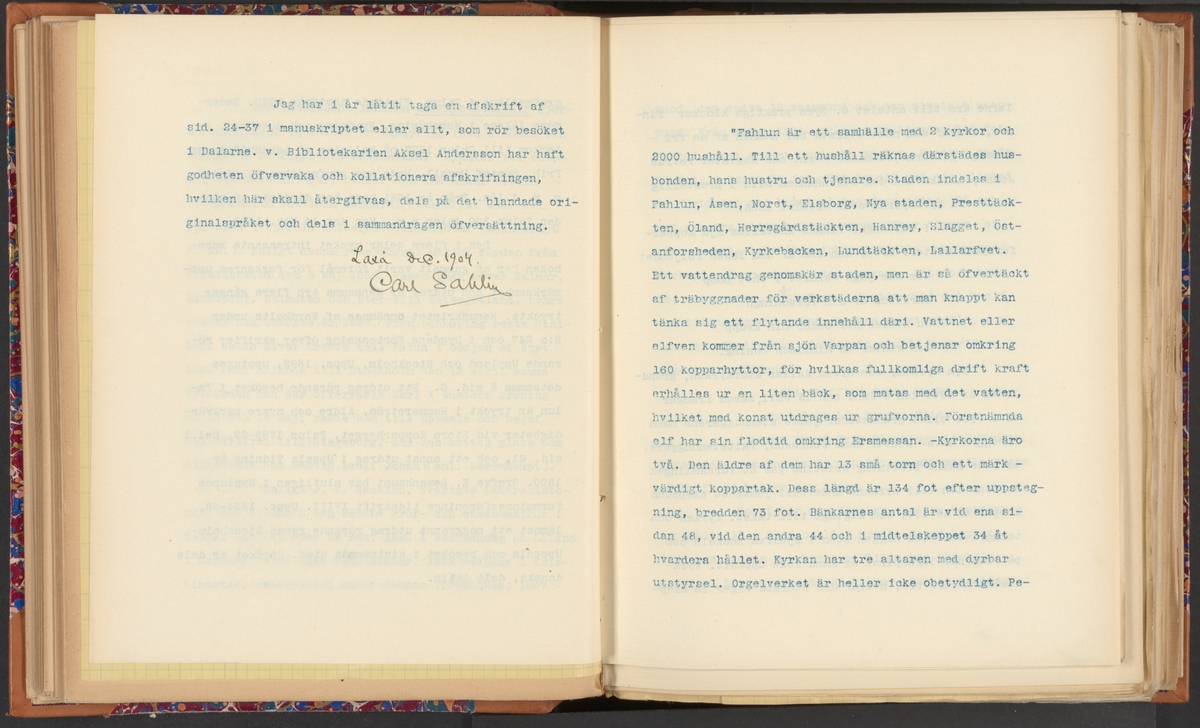 Jag har i år låtit taga en afskrift af
sid. 24-37 i manuskriptet eller allt, som rör besöket
i Dalarne. v. Bibliotekarien Aksel Andersson har haft
godheten öfvervaka och kollationera afskrifningen,
hvilken här skall återgifvas, dels på det blandade ori-
ginalspråket och dels i sammandragen öfversättning.
Laxå Dec. 1904.
Carl Sahlin
"Fahlun är ett samhälle med 2 kyrkor och
2000 hushåll. Till ett hushåll räknas därstädes hus-
bonden, hans hustru och tjenare. Staden indelas i
Fahlun, Åsen, Noret, Elsborg, Nya staden, Presttäck-
ten, Öland, Herregårdstäckten, Hanrey, Slagget, Öst-
anforsheden, Kyrkebacken, Lundtäckten, Lallarfvet.
Ett vattendrag genomskär staden, men är så öfvertäckt
af träbyggnader för verkstäderna att man knappt kan
tänka sig ett flytande innehåll däri. Vattnet eller
elfven kommer från sjön Varpan och betjenar omkring
160 kopparhyttor, för hvilkas fullkomliga drift kraft
erhålles ur en liten bäck, som matas med det vatten,
hvilket med konst utdrages ur grufvorna. Förstnämnda
elf har sin flodtid omkring Ersmessan. -Kyrkorna äro
två. Den äldre af dem har 13 små torn och ett märk -
värdigt koppartak. Dess längd är 134 fot efter uppsteg-
ning, bredden 73 fot. Bänkarnes antal är vid ena si-
dan 48, vid den andra 44 och i midtelskeppet 34 åt
hvardera hållet. Kyrkan har tre altaren med dyrbar
utstyrsel. Orgelverket är heller icke obetydligt. Pe-